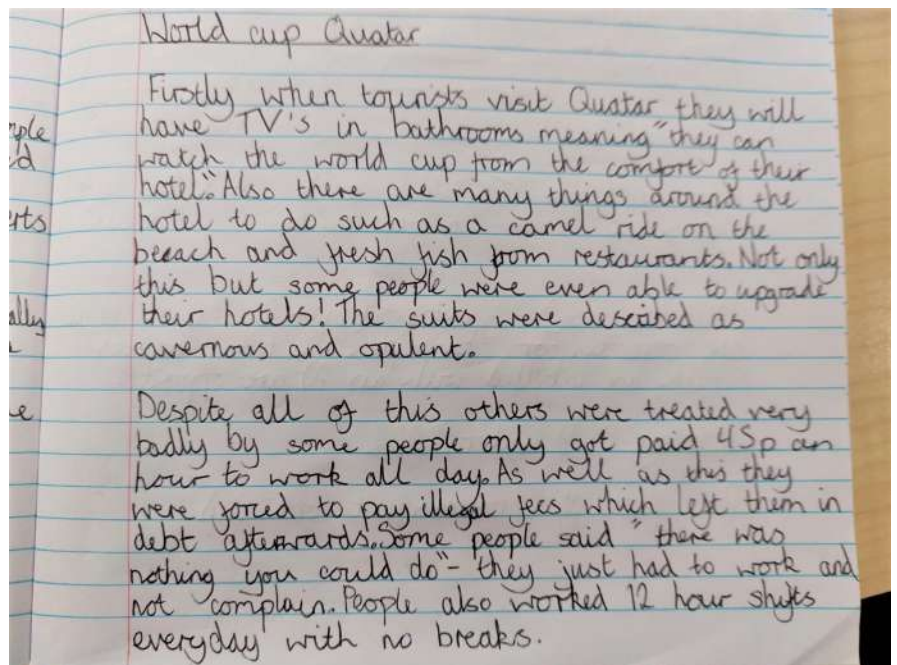 World cup Quatar
Firstly when tourists visit Quatar they will
have TV's in bathrooms meaning "they can
watch the world cup from the comfort of their
hotel." Also there are many things around the
hotel to do such as a camel ride on the
beeach and fresh fish from restaurants. Not only
this but some people were even able to upgrade
their hotels! The suits were described as
cavernous and opulent.
Despite all of this others were treated very
badly by some people only got paid 45p an
hour to work all day. As well as this they
were forced to pay illegal fees which left them in
debt afterwards. Some people said "there was
nothing you could do" - they just had to work and
not complain. People also worked 12 hour shifts
everyday with no breaks.